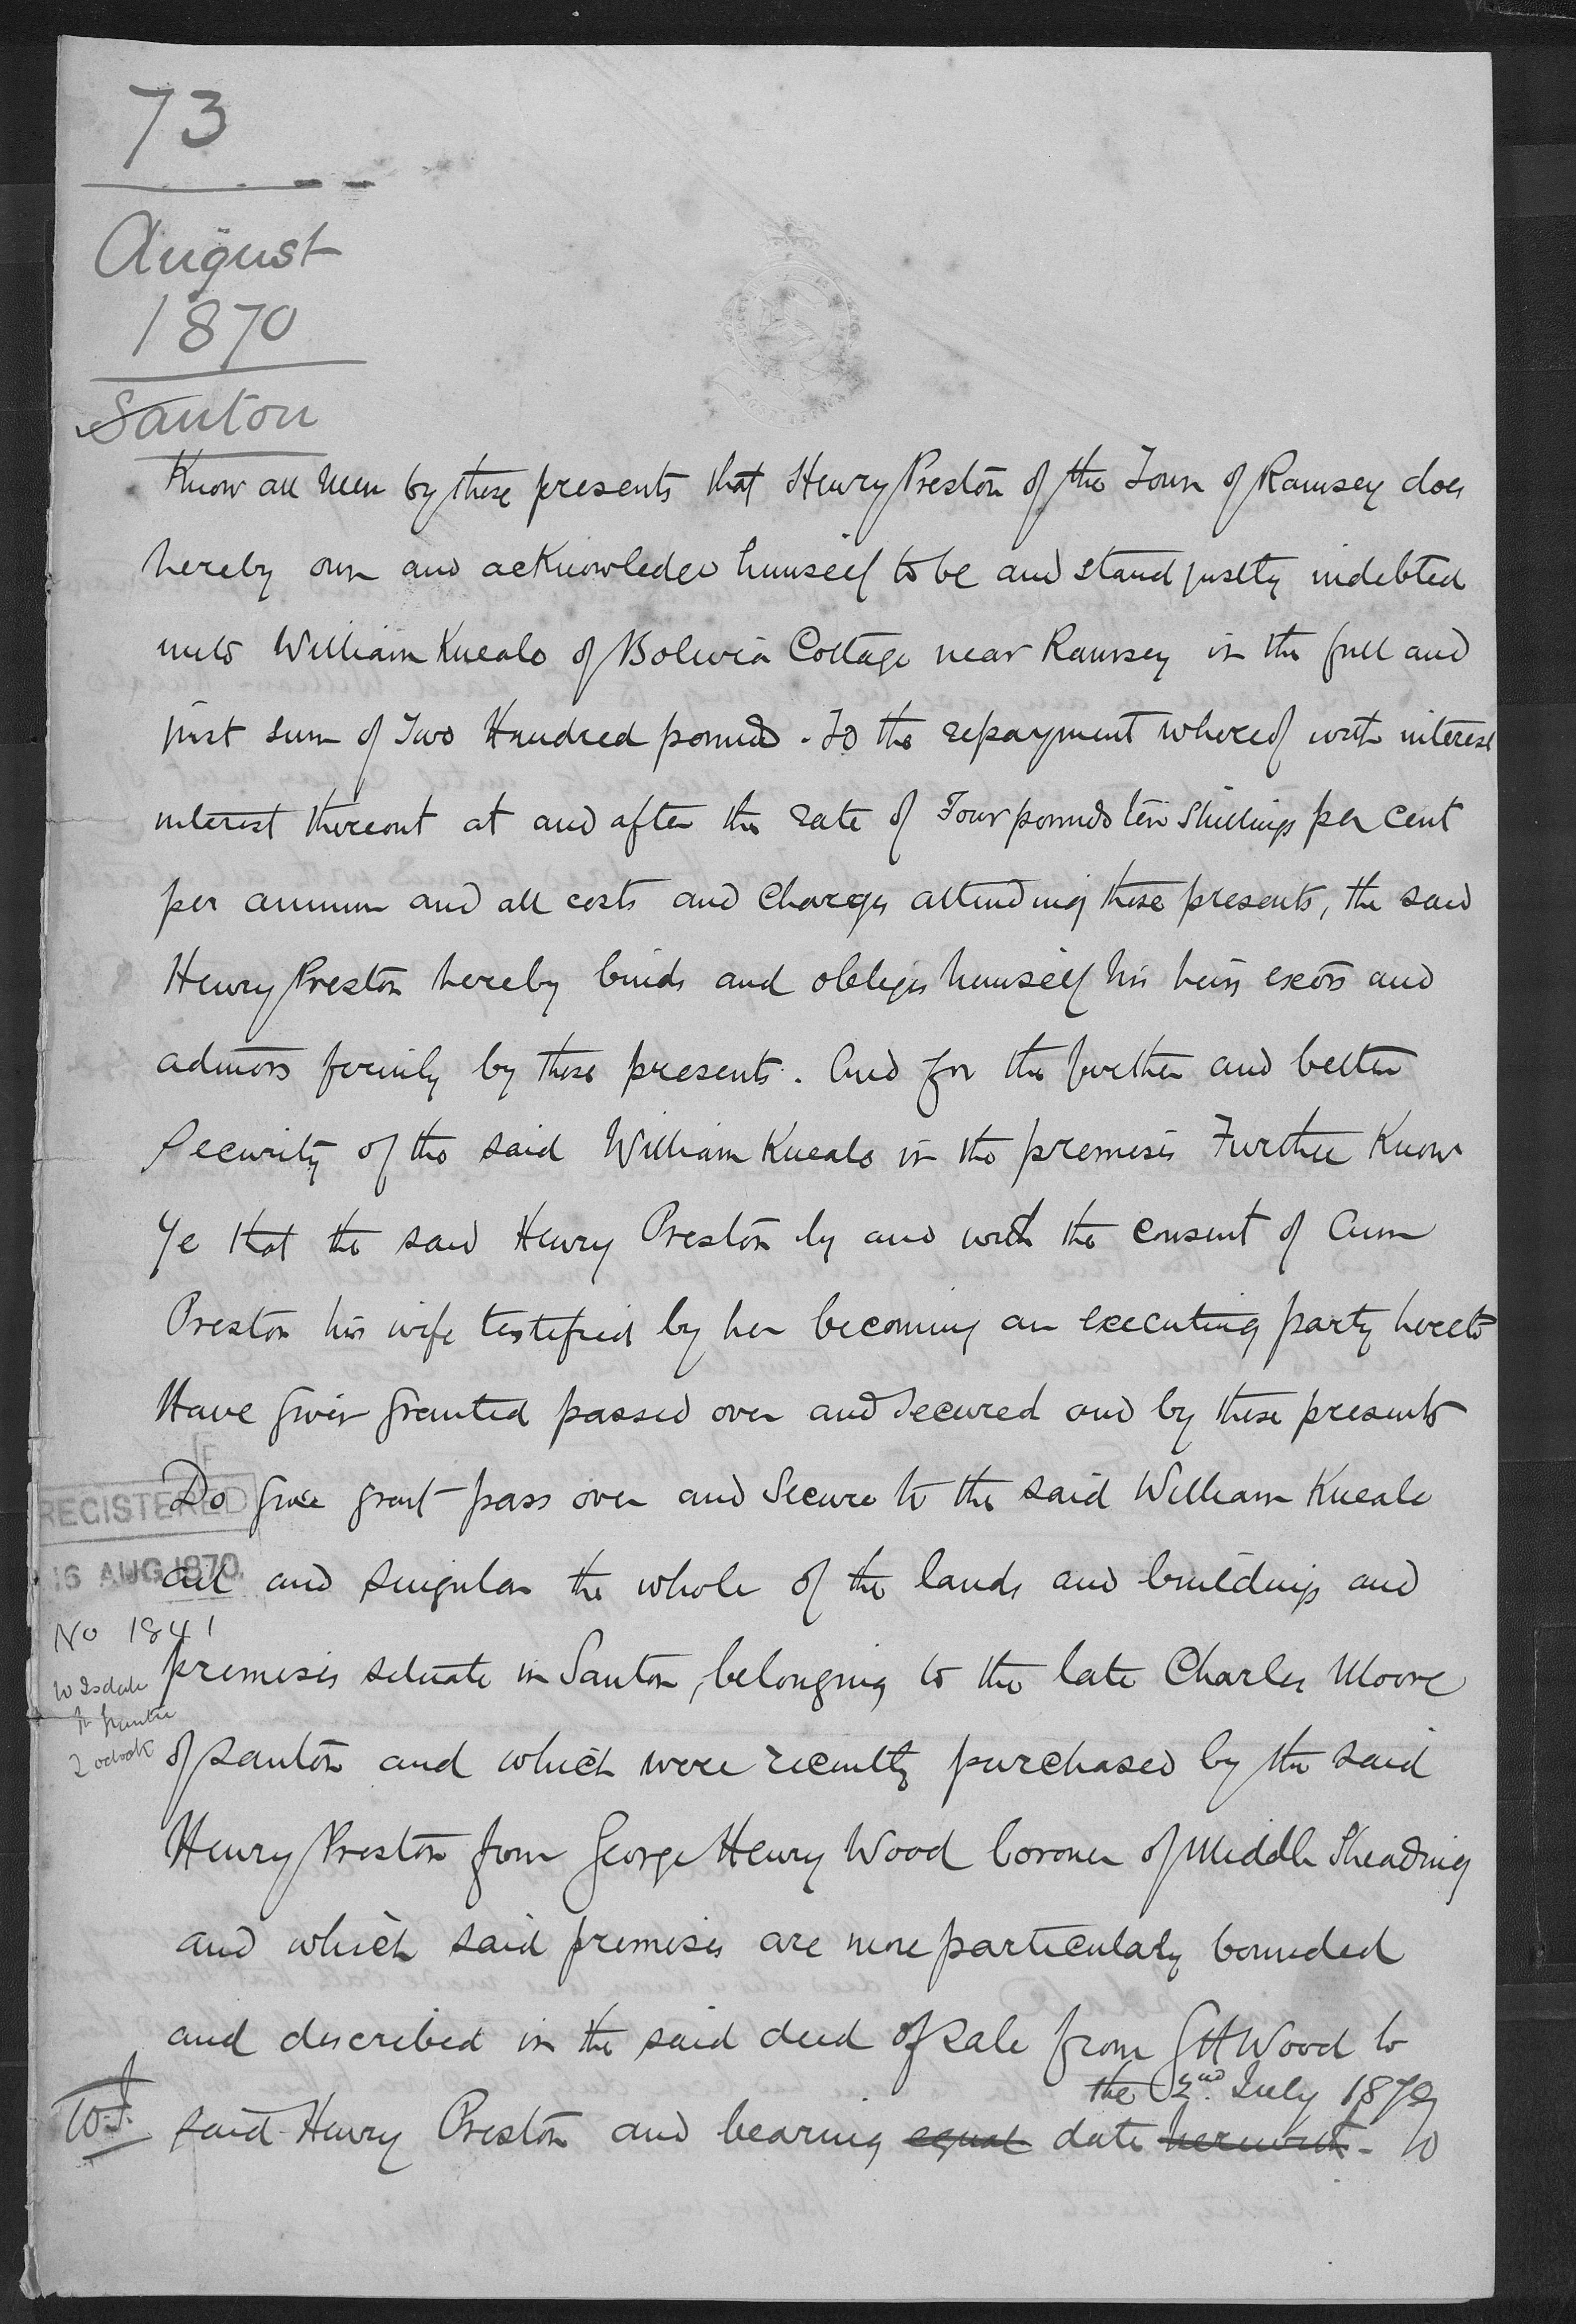 73
August
1870
Santon
Know all Men by these presents that Henry Preston of the Town of Ramsey does
hereby own and acknowledge himself to be and stand justly indebted
unto William Kneale of Bolivia Cottage near Ramsey in the full and
just sum of Two Hundred pounds. To the repayment whereof with interest
interest thereout at and after the rate of Four pounds ten Shillings per cent
per annum and all costs and charges attending these presents, the said
Henry Preston hereby binds and obliges himself his heirs exors and
admors firmly by these presents. And for the further and better
Security of the said William Kneale in the premises Further Know
Ye that the said Henry Preston by and with the consent of Ann
Preston his wife testified by her becoming an executing party hereto
Have given granted passed over and Secured and by these presents
Do give grant pass over and Secure to the said William Kneale
REGISTERED
all and singular the whole of the lands and buildings and
16 AUG 1870
No 1841
premises situate in Santon, belonging to the late Charles Moore
W Isdale
2 oclock
of Santon and which were recently purchased by the said
Henry Preston from George Henry Wood Coroner of Middle Sheading
and which said premises are more particularly bounded
and described in the said deed of sale from G H Wood to
the 2nd July 1870
W.I. said Henry Preston and bearing equal date herewith. To